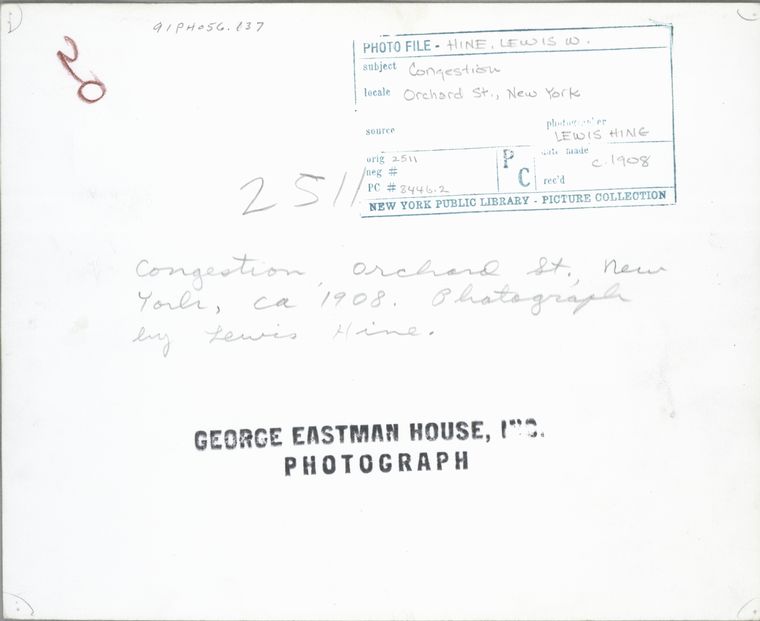 91PH056.137
PHOTO FILE - HINE, LEWIS W.
subject Congestion
locale Orchard St., New York
source
photographer
LEWIS HINE
orig 2511
neg #
PC # 8446.2
P
C
date made
c.1908
rec'd
NEW YORK PUBLIC LIBRARY - PICTURE COLLECTION
2511
Congestion, Orchard St., New
York, ca 1908. Photograph
by Lewis Hine.
GEORGE EASTMAN HOUSE, INC.
PHOTOGRAPH